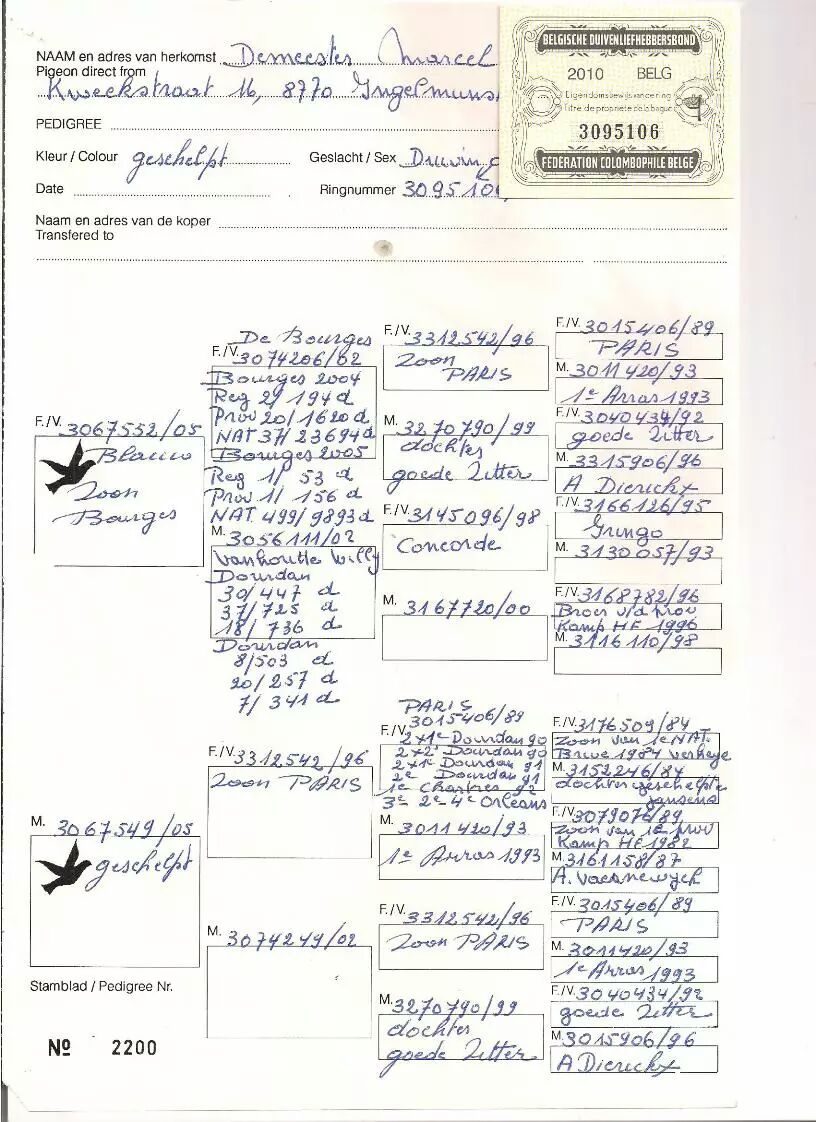 NAAM en adres van herkomst Demeester Marcel
Pigeon direct from
Kweekstraat 16, 8770 Ingelmuns
PEDIGREE
Kleur / Colour geschelpt Geslacht / Sex Duivin
Date Ringnummer 3095106
Naam en adres van de koper
Transfered to
BELGISCHE DUIVENLIEFHEBBERSBOND
2010 BELG
Eigendomsbewijs van de ring
Titre de propriété de la bague
3095106
FÉDÉRATION COLOMBOPHILE BELGE
F./V. 3067552/05
Blauw
Zoon
Bourges
De Bourges
F./V. 3074206/02
Bourges 2004
Reg 2/ 194 d
Prov 20/ 1620 d
NAT 37/ 23694 d
Bourges 2005
Reg 1/ 53 d
Prov 1/ 156 d
NAT 499/9893 d
M. 3056111/02
Vanhoutte Willy
Dourdan
30/447 d
37/725 d
18/736 d
Dourdan
8/503 d
20/257 d
7/341 d
F./V. 3312542/96
Zoon
PARIS
M. 3270790/99
dochter
goede Zitter
F./V. 3145096/98
Concorde
M. 3167720/00
F./V. 3015406/89
PARIS
M. 3011420/93
1e Arras 1993
F./V. 3040434/92
goede Zitter
M. 3315906/96
A Dierickx
F./V. 3166126/95
Gringo
M. 3130057/93
F./V. 3168782/96
Broer v/d prov
Kamp HF 1996
M. 3116110/98
M. 3067549/05
geschelpt
F./V. 3312542/96
Zoon PARIS
M. 3074249/02
PARIS
3015406/89
F./V. 2x1e Dourdan 90
2x2e Dourdan 90
2x1e Dourdan 91
2e Dourdan 91
1e Chartres 92
3e 2e 4e Orleans
M. 3011420/93
1e Arras 1993
F./V. 3312542/96
Zoon PARIS
M. 3270790/99
dochter
goede Zitter
F./V. 3176509/84
Zoon van 1e NAT.
Brive 1984 Verheye
M. 3152246/84
dochter geschelpte
Jansens
F./V. 3079076/89
Zoon van 1e prov
Kamp HF 1982
M. 3161158/87
A. Vaernewyck
F./V. 3015406/89
PARIS
M. 3011420/93
1e Arras 1993
F./V. 3040434/92
goede Zitter
M. 3015906/96
A Dierickx
Stamblad / Pedigree Nr.
Nº 2200